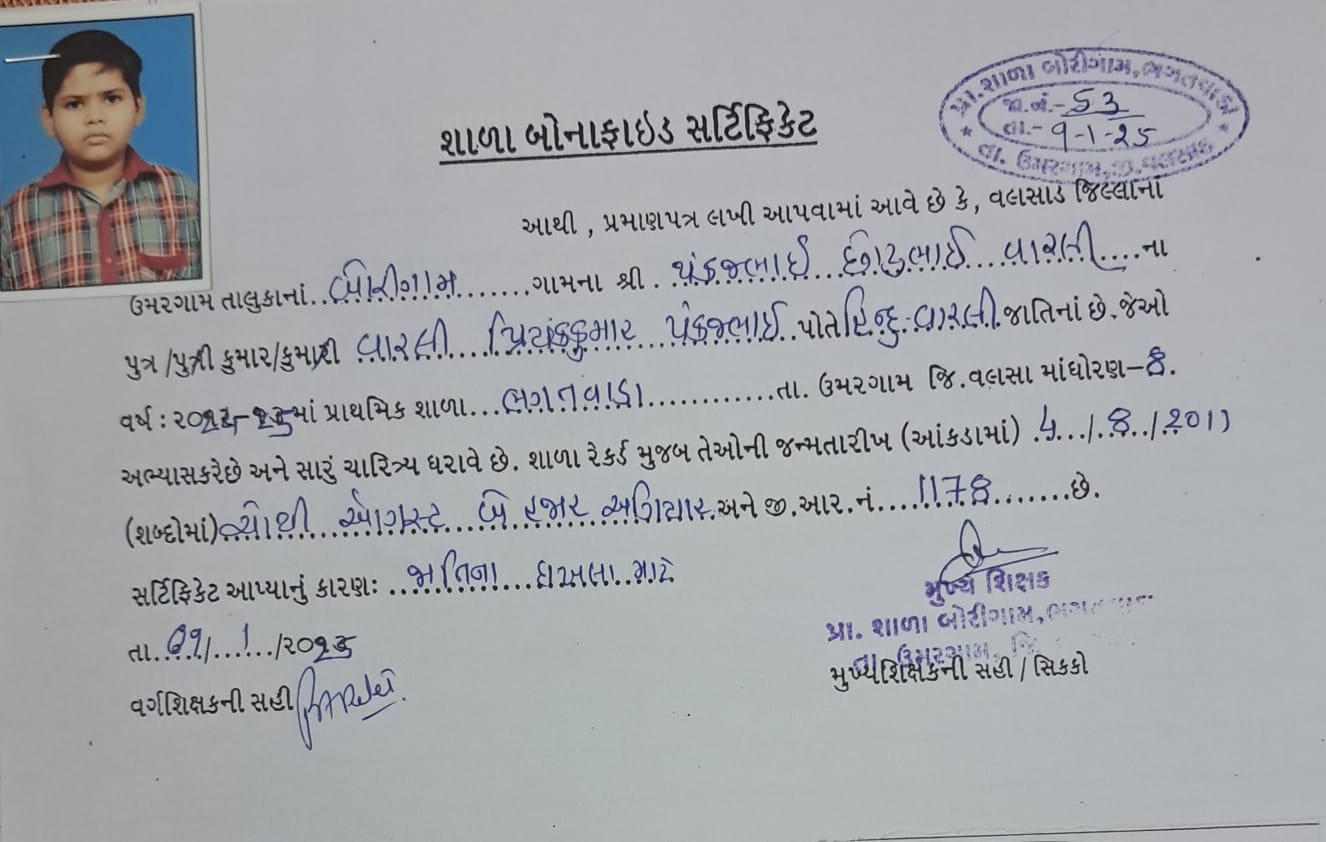 પ્રા.શાળા બોરીગામ, ભગતવાડા
જા.નં.- 53
તા.- 9-1-25
તા. ઉમરગામ, જી.વલસાડ
શાળા બોનાફાઇડ સર્ટિફિકેટ
આથી , પ્રમાણપત્ર લખી આપવામાં આવે છે કે, વલસાડ જિલ્લાનાં
ઉમરગામ તાલુકાનાં..બોરીગામ.......ગામના શ્રી . પંકજભાઈ...છોટુભાઈ...વારલી....ના
પુત્ર /પુત્રી કુમાર/કુમારી વારલી...પ્રિયંકકુમાર પંકજભાઈ.પોતે હિન્દુ-વારલી.જાતિનાં છે.જેઓ
વર્ષ : ૨૦૨૪-૨૫માં પ્રાથમિક શાળા...ભગતવાડા............તા. ઉમરગામ જિ.વલસા માંધોરણ–8.
અભ્યાસકરેછે અને સારું ચારિત્ર્ય ધરાવે છે. શાળા રેકર્ડ મુજબ તેઓની જન્મતારીખ (આંકડામાં) .4.../.8../.2011
(શબ્દોમાં)ચોથી ઓગસ્ટ...બે હજાર અગિયાર.અને જી.આર.નં....1178.......છે.
સર્ટિફિકેટ આપ્યાનું કારણઃ ..જાતિના...દાખલા..માટે
તા..09/...1.../૨૦૨૫
મુખ્ય શિક્ષક
પ્રા. શાળા બોરીગામ,ભગતવાડા
તા. ઉમરગામ, જિ.
વર્ગશિક્ષકની સહી
મુખ્યશિક્ષકની સહી / સિકકો